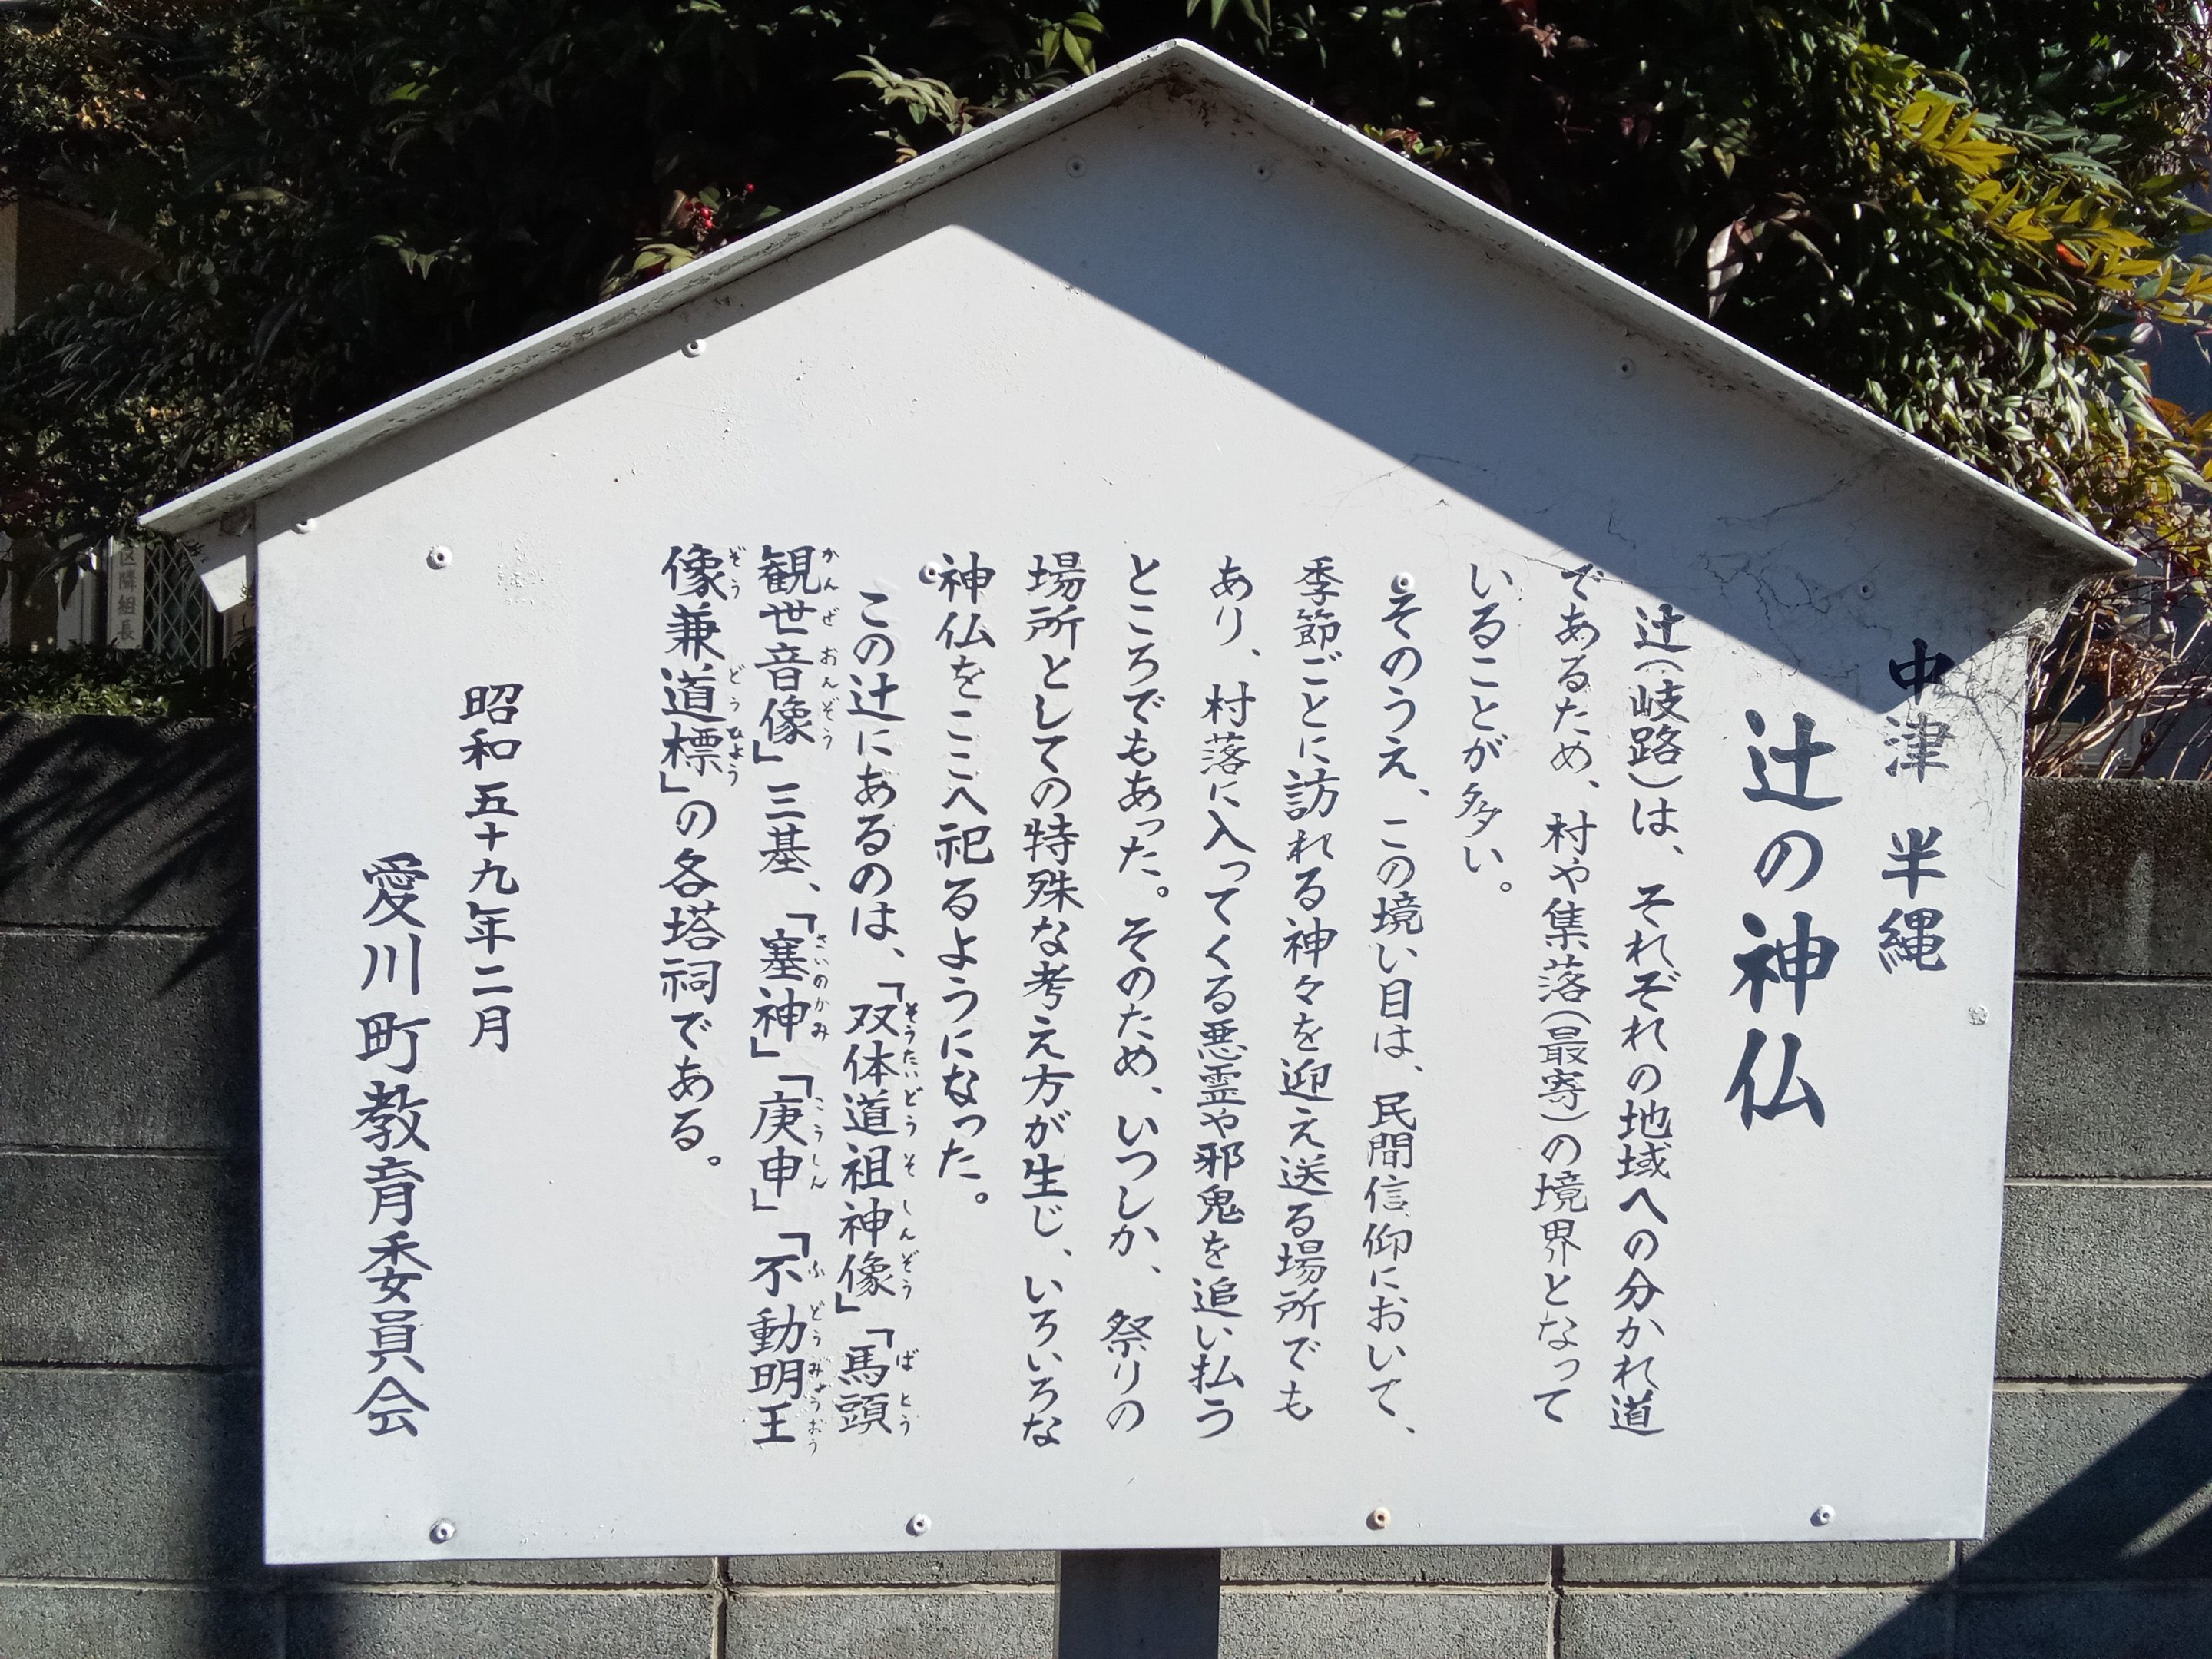 中津 半縄
辻の神仏
辻(岐路)は、それぞれの地域への分かれ道
であるため、村や集落(最寄)の境界となって
いることが多い。
そのうえ、この境い目は、民間信仰において、
季節ごとに訪れる神々を迎え送る場所でも
あり、村落に入ってくる悪霊や邪鬼を追い払う
ところでもあった。そのため、いつしか、祭りの
場所としての特殊な考え方が生じ、いろいろな
神仏をここへ祀るようになった。
この辻にあるのは、「双体道祖神像」「馬頭
そうたいどうそしんぞう ばとう
観世音像」三基、「塞神」「庚申」「不動明王
かんぜおんぞう さいのかみ こうしん ふどうみょうおう
像兼道標」の各塔祠である。
ぞう どうひょう
昭和五十九年二月
愛川町教育委員会
区隣組長